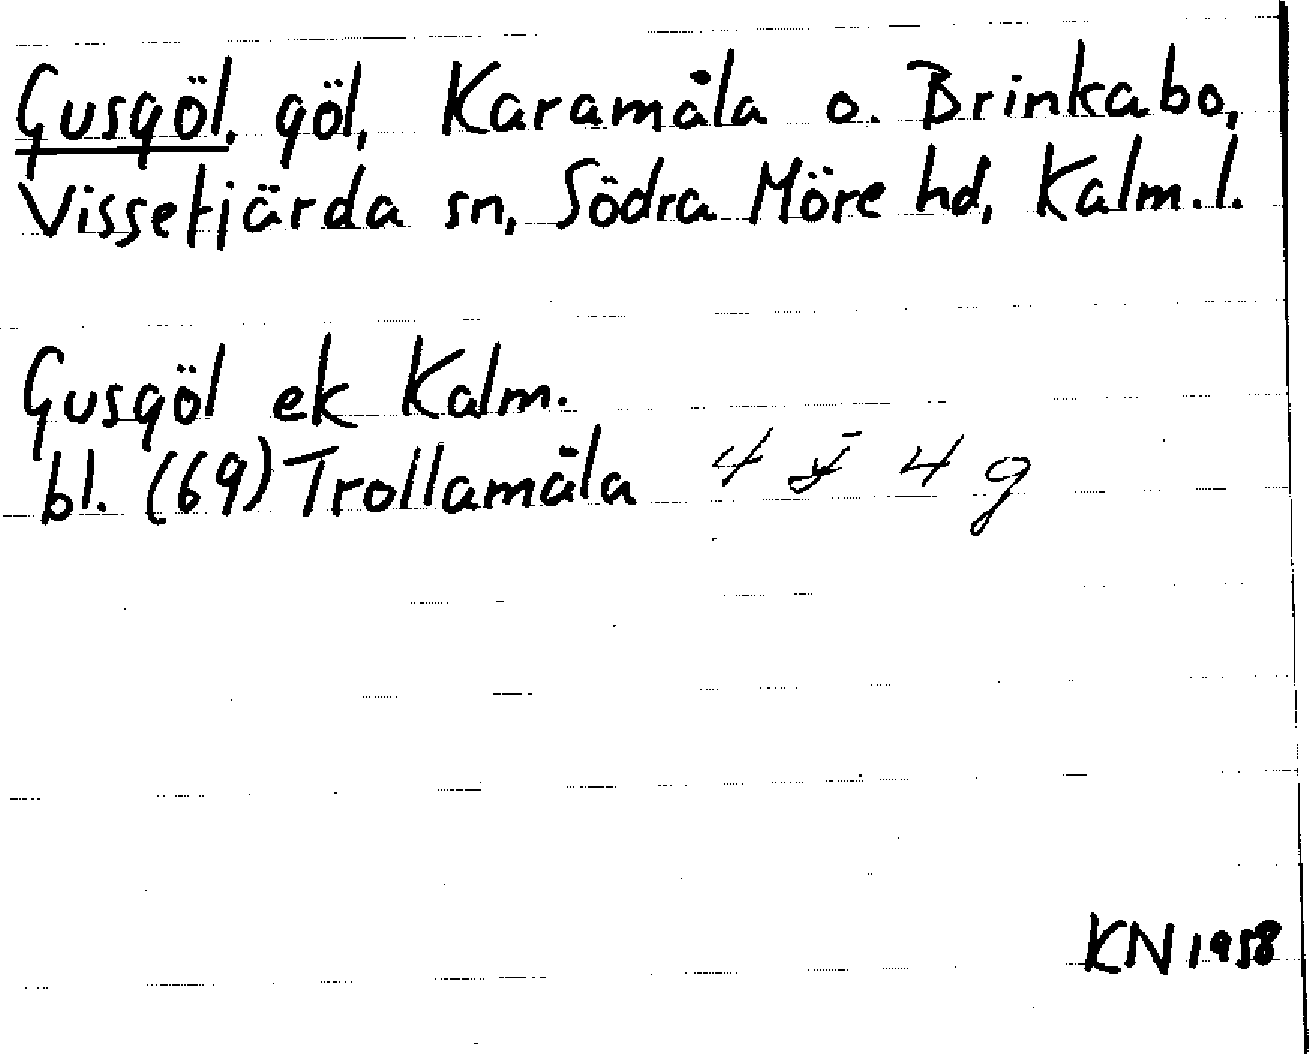 Gusgöl, göl, Karamåla o. Brinkabo,
Vissefjärda sn, Södra Möre hd, Kalm.l.
Gusgöl ek Kalm.
bl. (69) Trollamåla 4 4 g
KN 1958